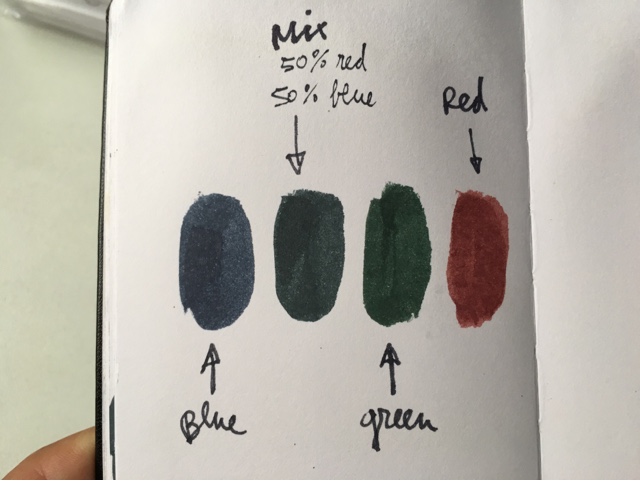 Mix
50% red
50% blue
Red
Blue
green